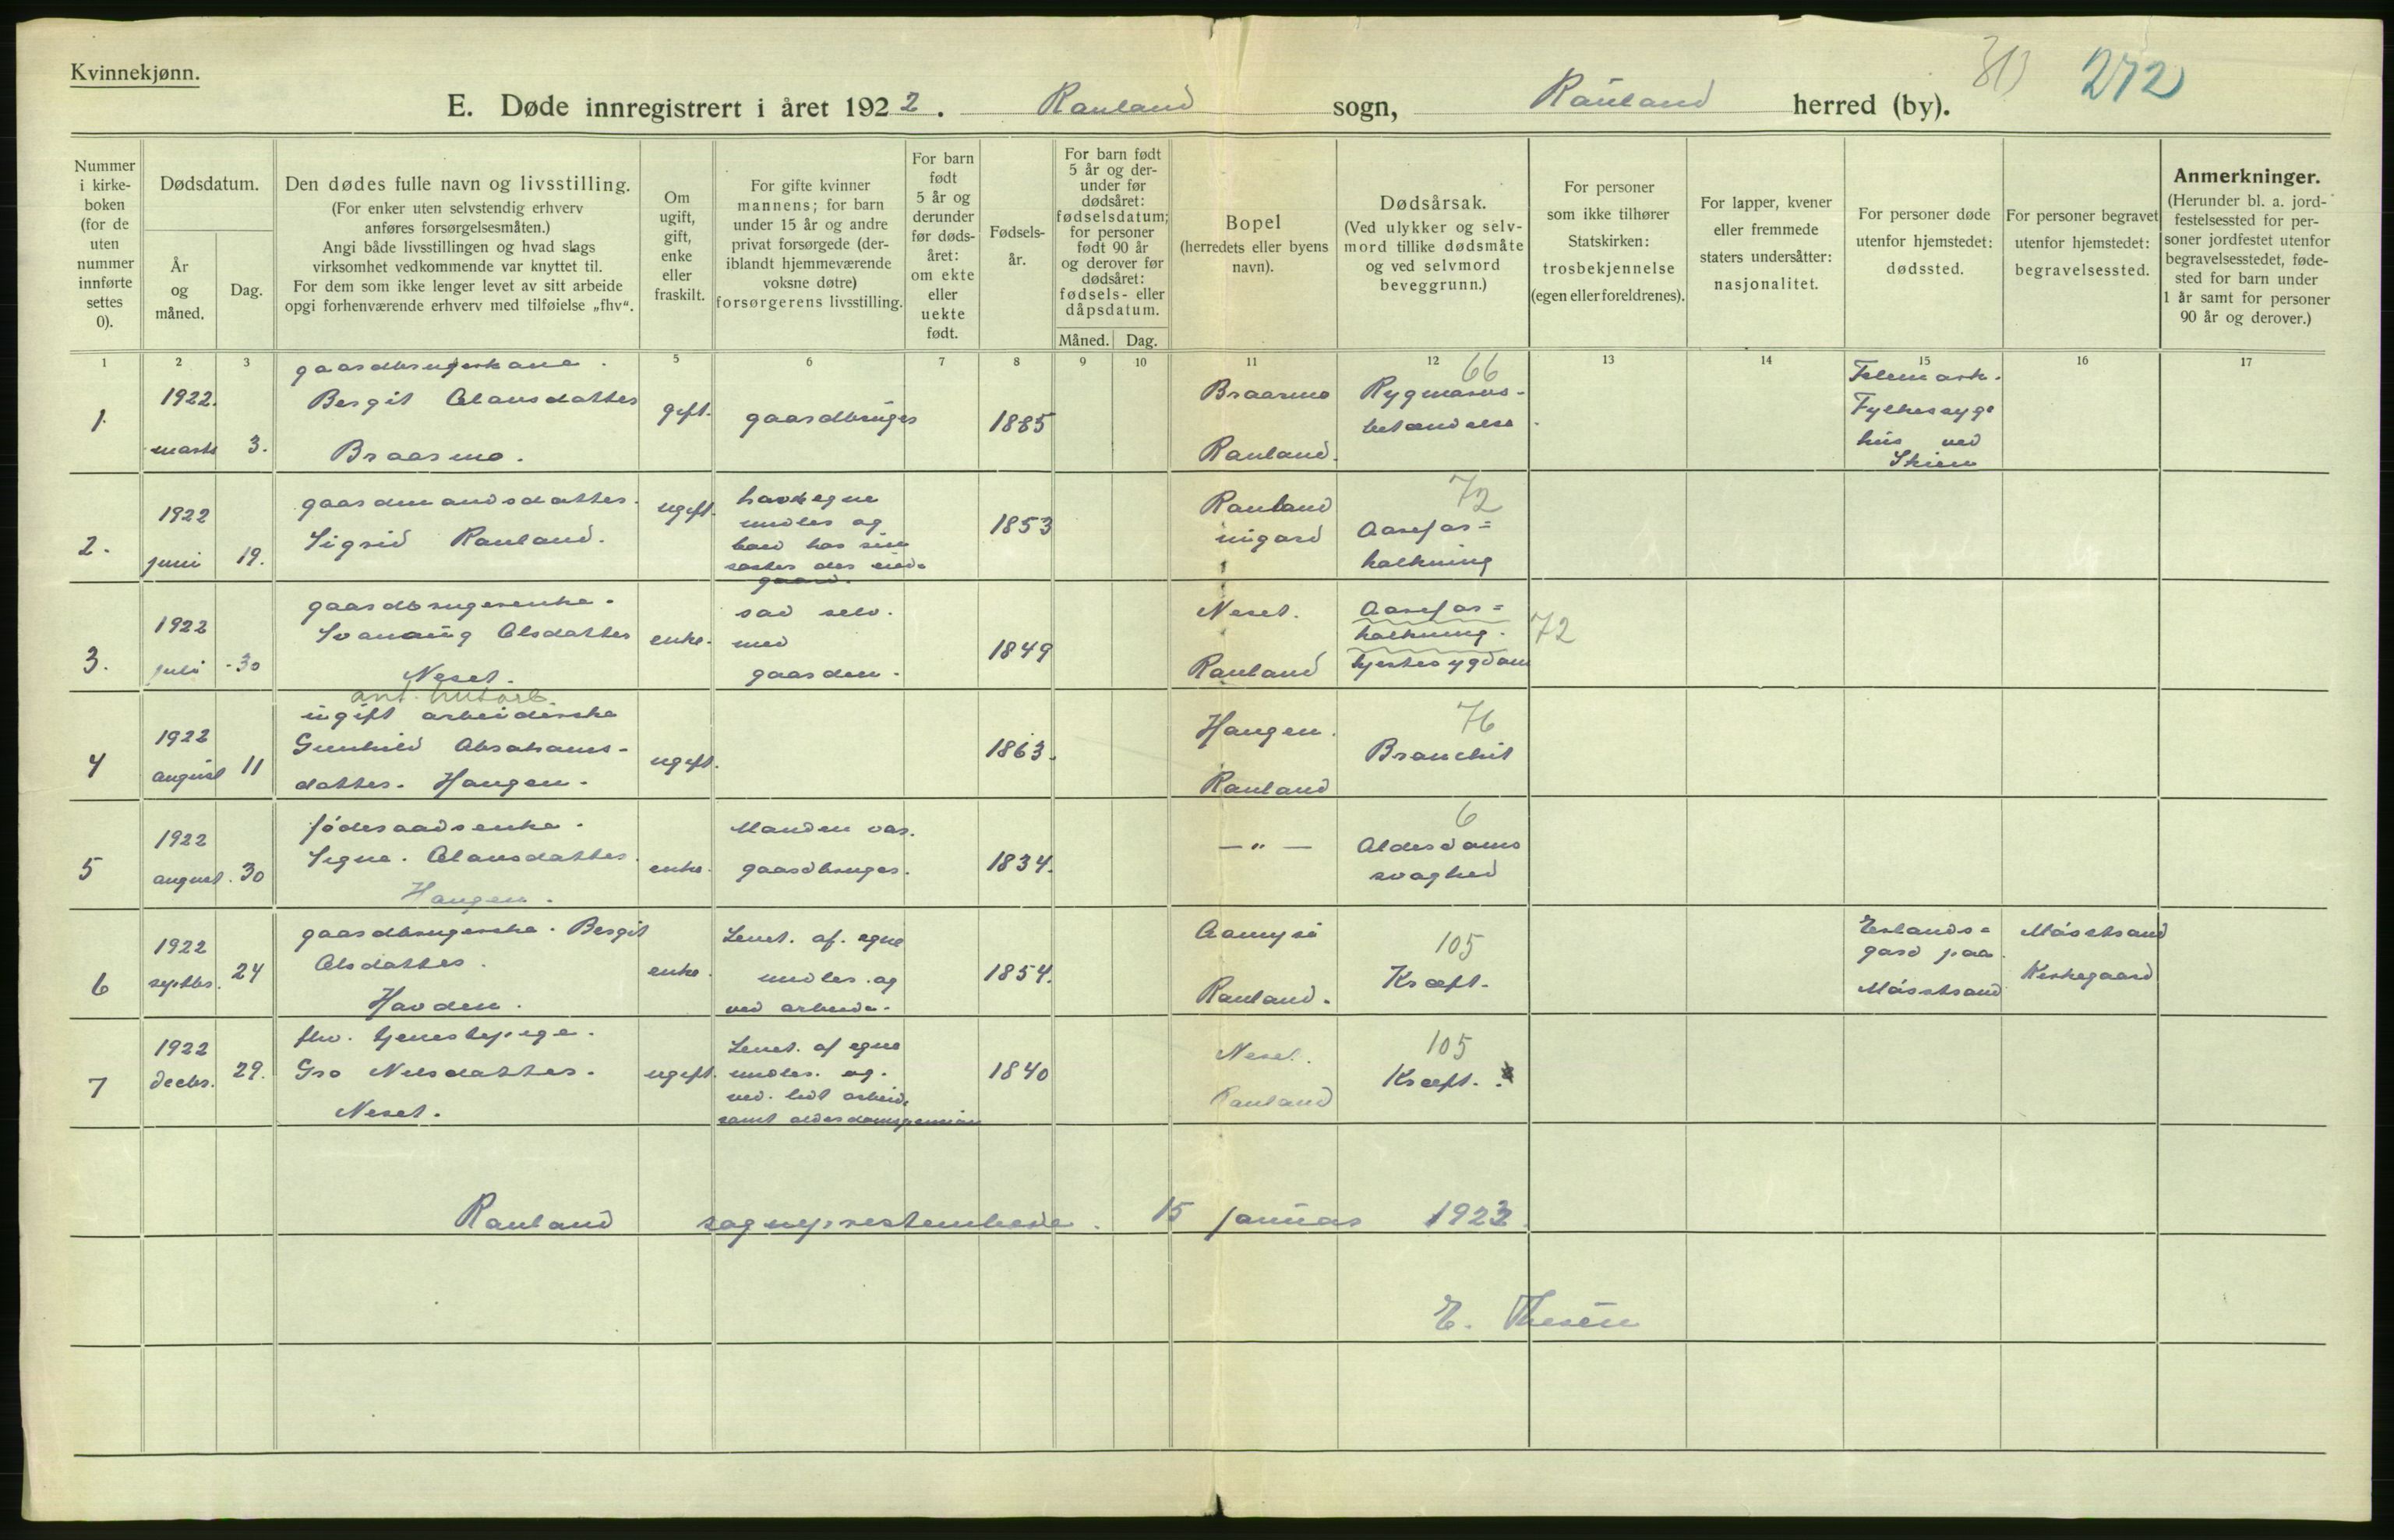 Kvinnekjønn.
313 272
E. Døde innregistrert i året 1922. Rauland sogn, Rauland herred (by).
Nummer i kirke-boken (for de uten nummer innførte settes 0).
Dødsdatum.
År og måned.
Dag.
Den dødes fulle navn og livsstilling.
(For enker uten selvstendig erhverv
anføres forsørgelsesmåten.)
Angi både livsstillingen og hvad slags
virksomhet vedkommende var knyttet til.
For dem som ikke lenger levet av sitt arbeide
opgi forhenværende erhverv med tilføielse „fhv“.
Om ugift, gift, enke eller fraskilt.
For gifte kvinner
mannens; for barn
under 15 år og andre
privat forsørgede (der-
iblandt hjemmeværende
voksne døtre)
forsørgerens livsstilling.
For barn født
5 år og derunder
før døds-året:
om ekte eller uekte født.
Fødsels-år.
For barn født
5 år og der-
under før
dødsåret:
fødselsdatum;
for personer
født 90 år
og derover før
dødsåret:
fødsels- eller
dåpsdatum.
Måned. Dag.
Bopel
(herredets eller byens
navn).
Dødsårsak.
(Ved ulykker og selv-
mord tillike dødsmåte
og ved selvmord
beveggrunn.)
For personer
som ikke tilhører
Statskirken:
trosbekjennelse
(egen eller foreldrenes).
For lapper, kvener
eller fremmede
staters undersåtter:
nasjonalitet.
For personer døde
utenfor hjemstedet:
dødssted.
For personer begravet
utenfor hjemstedet:
begravelsessted.
Anmerkninger.
(Herunder bl. a. jord-
festelsessted for per-
soner jordfestet utenfor
begravelsesstedet, føde-
sted for barn under
1 år samt for personer
90 år og derover.)
1 2 3 5 6 7 8 9 10 11 12 13 14 15 16 17
1. 1922. marts 3.
gaardbrugerkone.
Bergit Olausdatter
Braarmo.
gift. gaardbruger 1885
Braarmo
Rauland.
66
Rygmarvs-
betændelse.
Telemark.
Fylkessyge
hus ved
Skien
2. 1922 juni 19.
gaardmandsdatter.
Sigrid Rauland.
ugift.
havde egne
midler og
boed hos sin
søster der
gaard.
1853
Rauland
nigard
72
Aarefor=
kalkning
3. 1922 juli -30
gaardbrugerenke.
Svanaug Olsdatter
Neset.
enke.
sad selv.
med
gaarden.
1849
Neset.
Rauland
Aarefor=
kalkning.
hjertesygdom
72
4 1922 august 11
ant. husarb.
ugift arbeiderske
Gunhild Abrahams-
datter. Haugen.
ugift. 1863.
Haugen.
Rauland
76
Bronchit
5 1922 august. 30
føderaadsenke.
Signe. Olausdatter.
Haugen.
enke.
Manden var.
gaardbruger.
1834.
— „ —
6
Alderdoms
svaghed
6 1922 septbr. 24
gaardbrugerske. Bergit
Olsdatter.
Havden.
enke.
Levet. af. egne
midler. og
ved arbeide.
1854.
Aamyri
Rauland.
105
Kræft.
Erlands=
gard paa.
Møsstrand
Møsstrand
Kirkegaard
7 1922 decbr. 29.
fhv. tjenestepige.
Gro Nilsdatter.
Neset.
ugift.
Levet. af egne
midler. og.
ved. lidt arbeide
samt alderdomspension
1840
Neset.
Rauland
105
Kræft.
Rauland sogneprestembede. 15 januar 1923.
E. Thesen